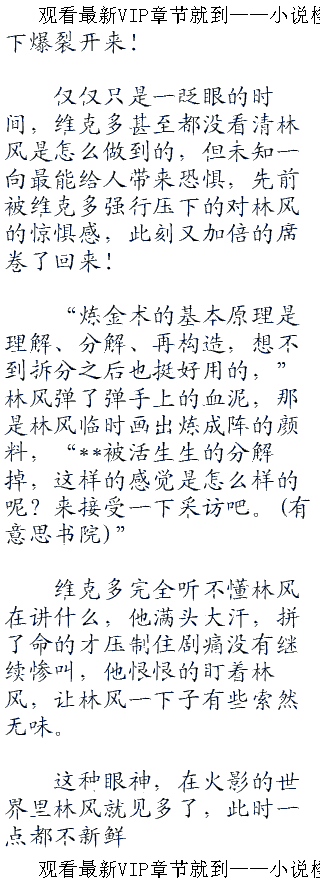 观看最新VIP章节就到——小说
下爆裂开来！
仅仅只是一眨眼的时
间，维克多甚至都没看清林
风是怎么做到的，但未知一
向最能给人带来恐惧，先前
被维克多强行压下的对林风
的惊惧感，此刻又加倍的席
卷了回来！
“炼金术的基本原理是
理解、分解、再构造，想不
到拆分之后也挺好用的，”
林风弹了弹手上的血泥，那
是林风临时画出炼成阵的颜
料，“**被活生生的分解
掉，这样的感觉是怎么样的
呢？来接受一下采访吧。(有
意思书院)”
维克多完全听不懂林风
在讲什么，他满头大汗，拼
了命的才压制住剧痛没有继
续惨叫，他恨恨的盯着林
风，让林风一下子有些索然
无味。
这种眼神，在火影的世
界里林风就见多了，此时一
点都不新鲜
观看最新VIP章节就到——小说